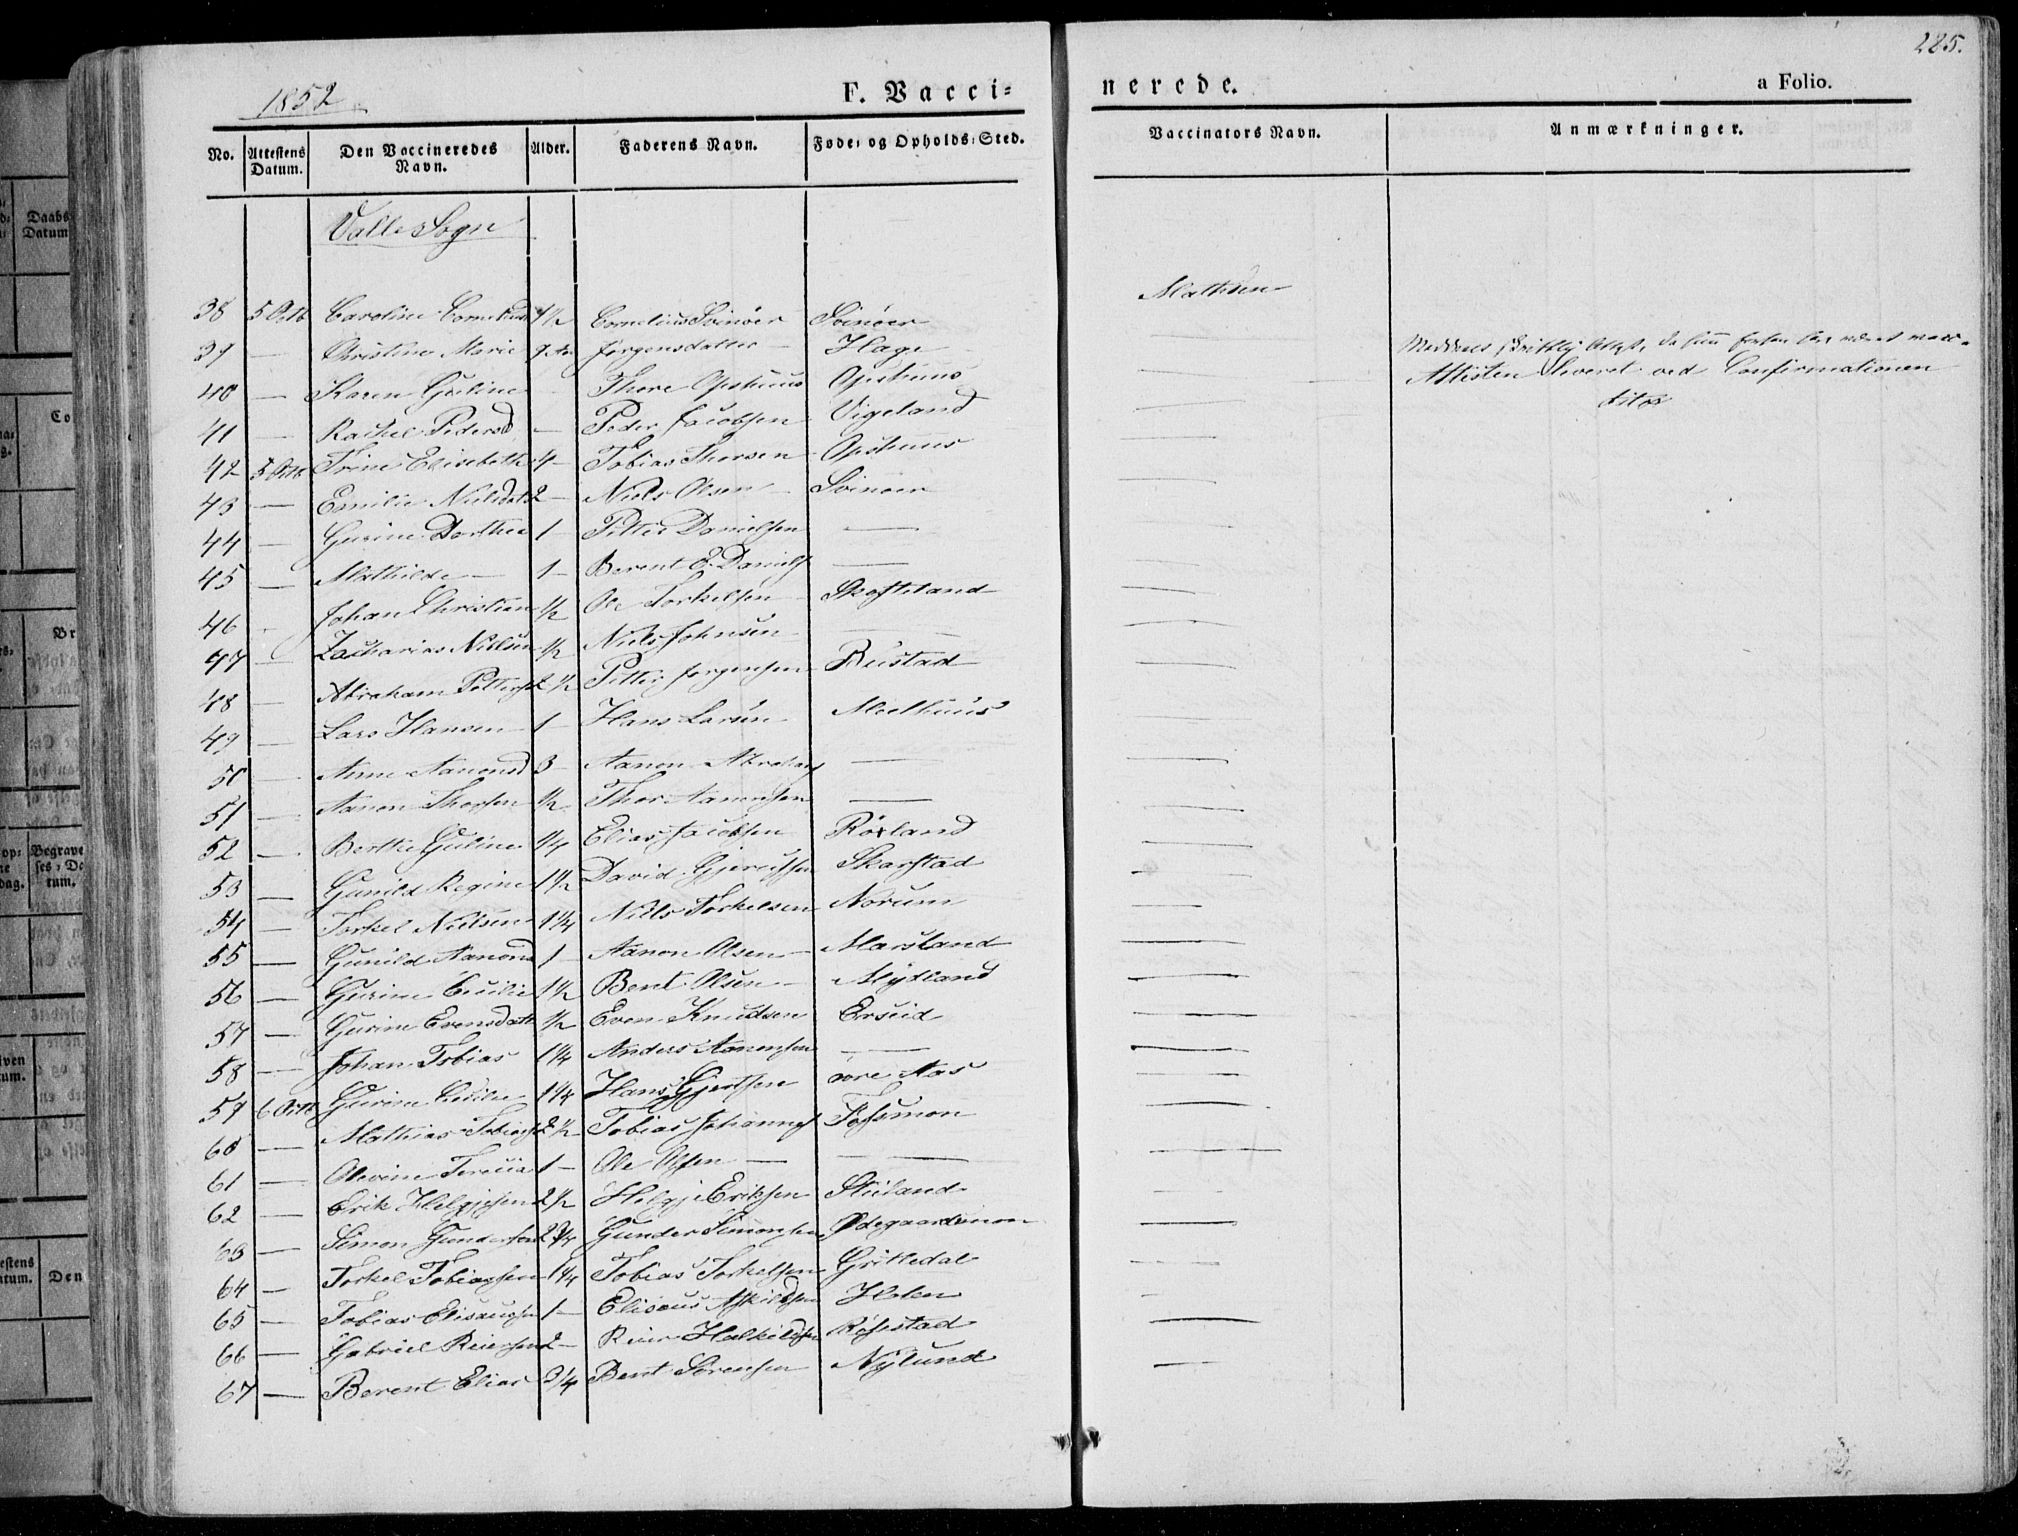 285.
1852 F. Vacci= nerede. a Folio.
No. Attestens Datum. Den Vaccineredes Navn. Alder. Faderens Navn. Føde= og Opholds=Sted. Vaccinators Navn. Anmærkninger.
Valle Sogn
38 5 Octb Caroline 1/2 Cornelius Svinøer Svinøer Mathisen
39 — Christine Marie Jørgensdatter — Hage —
40 — Karen Guline Thore Opshuus Opshuus — Attesten leveret ved Confirmationen
41 — Rachel Pedersd — Peder Jacobsen Vigeland —
42 5 Octb Trine Elisabeth 4 — Tobias Thorsen Opshuus —
43 — Emilie Nielsdat 2 — Niels Olsen — Svinøer —
44 — Gurine Dorthea 1 — Petter Danielsen — —
45 — Mathilde — 1 — Berent E. Daniels — —
46 Johan Christian 1/2 Ole Torkelsen Skofteland —
47 — Zacharias Nielsen 1/2 Niels Johnsen — —
48 — Abraham Petters 2 1/2 Petter Jørgensen Bustad —
49 — Lars Hansen 1 — Hans Larsen Moelhuus —
50 — Anne Aanonsd 3 — Aanon Abrahams — —
51 — Aanon Thorsen 1/2 Thor Aanonsen — —
52 — Berthe Guline 1/4 Elias Jacobsen Røxland —
53 — Gunild Regine 1 1/2 David Skarstad —
54 — Torkel Nielsen 1 1/4 Niels Torkelsen Norum —
55 — Gunild Aanons 1 — Aanon Olsen — Marsland —
56 — Gurine Cecilie 1 1/2 Bent Olsen — Mydland —
57 — Gurine Evensdatt 1/2 Even Knudsen Erseid —
58 — Johan Tobias 1 1/4 Anders Aanonsen — —
59 6 Octb Gurine Cecilie 1 1/4 Hans Gjertsen øvre Aas —
60 — Mathias Tobias 2 1/2 Tobias Johannes Fossmon —
61 — Olevine Teresia 1 — Ole Olsen — — —
62 — Erik Helgjesen 2 1/2 Helgje Eriksen Stuland —
63 — Simon Gundersen 2 3/4 Gunder Simonsen Ødegaardsmon —
64 — Torkel Tobiassen 1 1/4 Tobias Torkelsen Grittedal —
65 — Tobias Elisæussen 1 — Elisæus Askildsen Holen —
66 — Gabriel Reiersen 2 — Reier Halkildsen Røsstad —
67 — Berent Elias 3/4 Bent Sørensen Nylund —